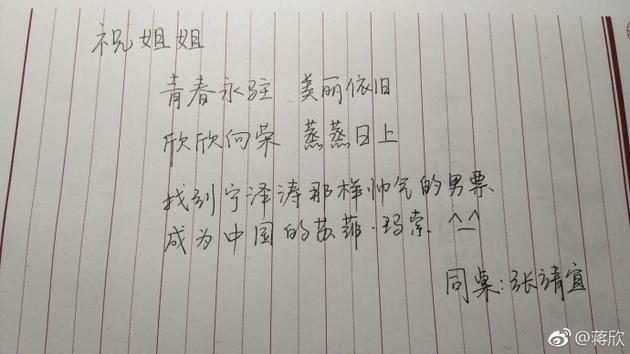 祝姐姐
青春永驻 美丽依旧
欣欣向荣 蒸蒸日上
找到宁泽涛那样帅气的男票
成为中国的苏菲·玛索 ^_^
同桌:张靖宜
@蒋欣